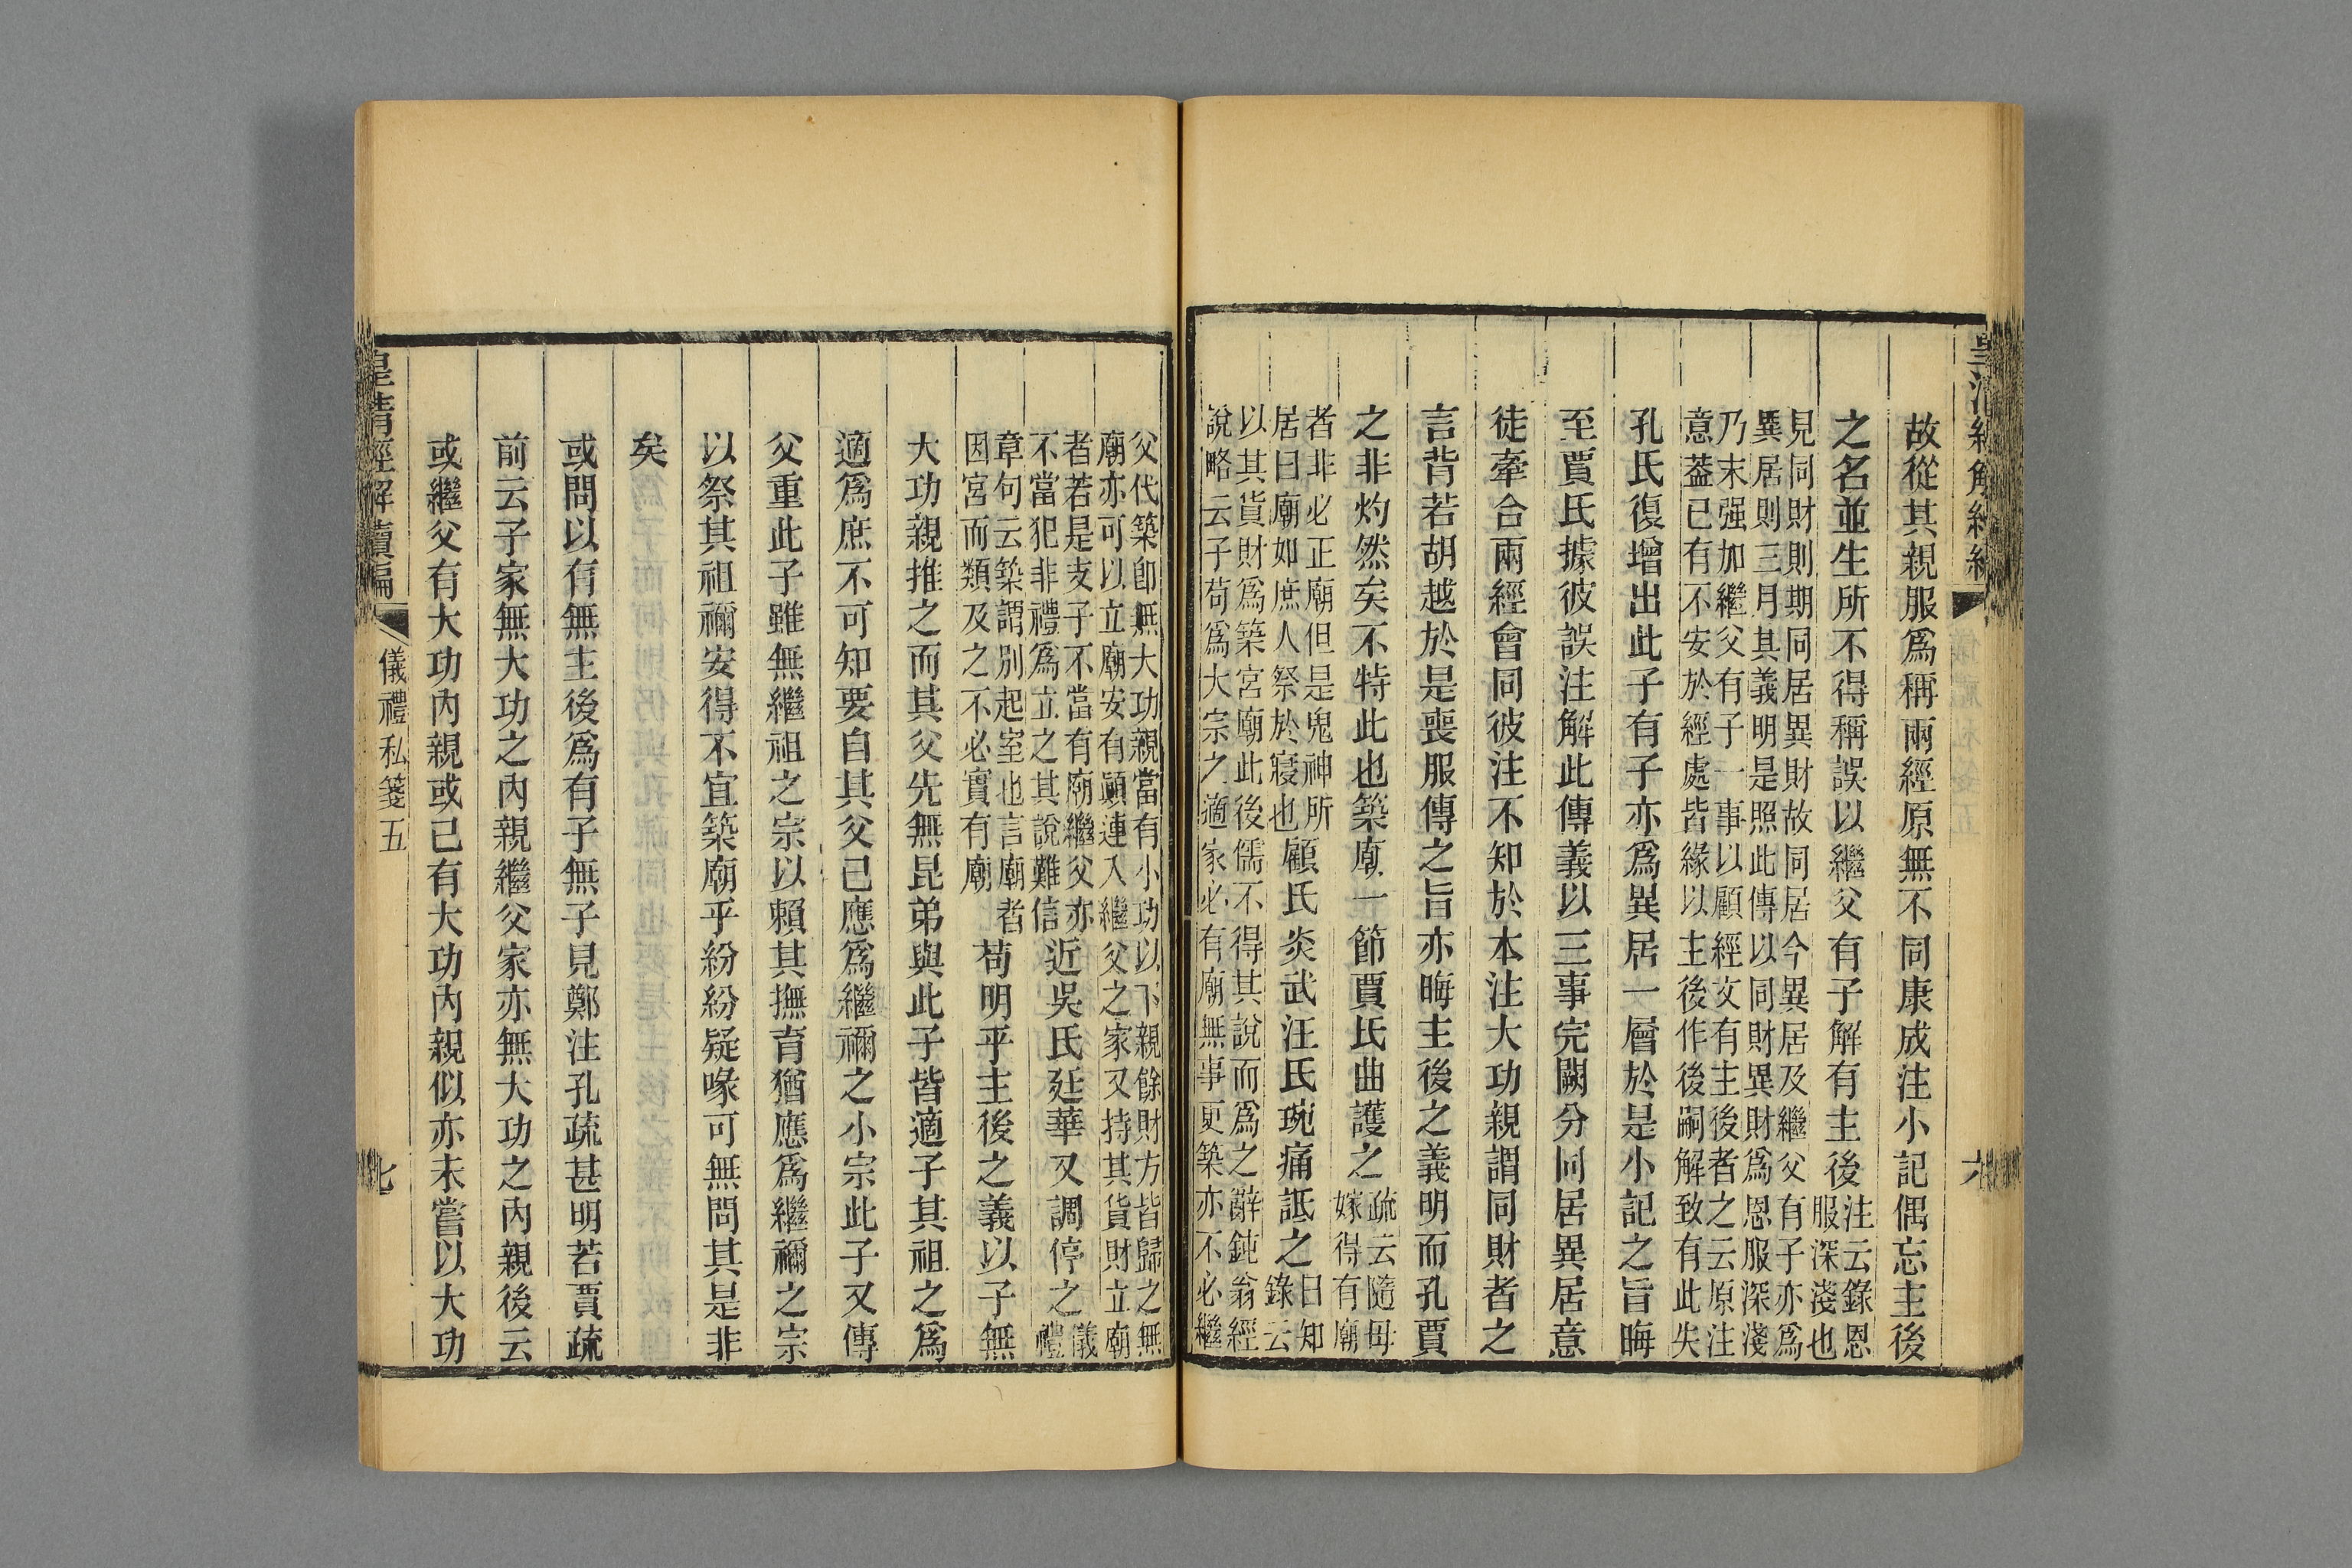 故從其親服爲稱兩經原無不同康成注小記偶忘主後
之名並生所不得稱誤以繼父有子解有主後注云錄恩
服深淺也
見同財則期同居異財故同居今異居及繼父有子亦爲
異居則三月其義明是照此傳以同財異財爲恩服深淺
乃末强加繼父有子一事以顧經文有主後者之云原注
意葢已有不安於經處皆緣以主後作後嗣解致有此失
孔氏復增出此子有子亦爲異居一層於是小記之旨晦
至賈氏據彼誤注解此傳義以三事完闕分同居異居意
徒牽合兩經會同彼注不知於本注大功親謂同財者之
言背若胡越於是喪服傳之旨亦晦主後之義明而孔賈
之非灼然矣不特此也築廟一節賈氏曲護之疏云隨母
嫁得有廟
者非必正廟但是鬼神所
居曰廟如庶人祭於寢也顧氏炎武汪氏琬痛詆之日知
錄云
以其貨財爲築宮廟此後儒不得其說而爲之辭鈍翁經
說略云子苟爲大宗之適家必有廟無事更築亦不必繼
父代築卽無大功親當有小功以下親餘財方皆歸之無
廟亦可以立廟安有顓連入繼父之家又持其貨財立廟
者若是支子不當有廟繼父亦
不當犯非禮爲立之其說難信近吳氏廷華又調停之儀
禮
章句云築謂別起室也言廟者
因宮而類及之不必實有廟苟明乎主後之義以子無
大功親推之而其父先無昆弟與此子皆適子其祖之爲
適爲庶不可知要自其父己應爲繼禰之小宗此子又傳
父重此子雖無繼祖之宗以賴其撫育猶應爲繼禰之宗
以祭其祖禰安得不宜築廟乎紛紛疑喙可無問其是非
矣
或問以有無主後爲有子無子見鄭注孔疏甚明若賈疏
前云子家無大功之內親繼父家亦無大功之內親後云
或繼父有大功內親或已有大功內親似亦未嘗以大功
皇清經解續編
儀禮私箋五
七